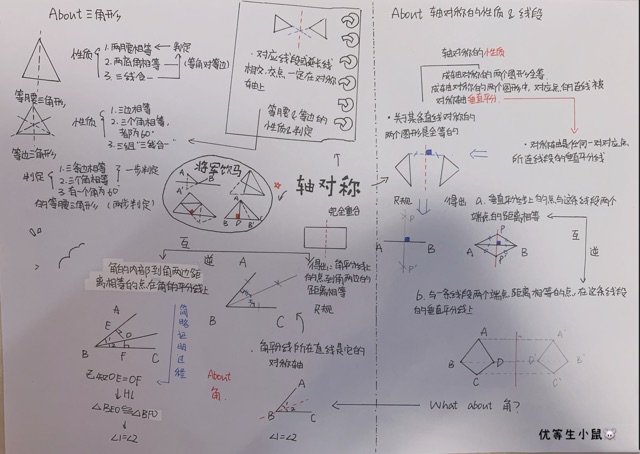 About 三角形
性质
1. 两腰相等
2. 两底角相等
3. 三线合一
判定
(等角对等边)
等腰三角形
性质
1. 三边相等
2. 三个角相等,
都为60°
3. 三组"三线合一"
等边三角形
判定
1. 三条边相等
2. 三个角相等
一步判定
3. 有一个角为60°
的等腰三角形
(两步判定)
·对应线段或延长线
相交,交点一定在对称
轴上
等腰&等边的
性质&判定
将军饮马
A
B
A'
A
B
D
B'
C
轴对称
完全重合
互
逆
角的内部到角两边距
离相等的点,在角的平分线上
A
B
C
得出:角平分线上
的点到角两边的
距离相等
A
E
D
B
F
C
简略证明过程
已知DE=DF
↓HL
△BED≌△BFD
↓
∠1=∠2
About
角
·角平分线所在直线是它的
对称轴
A
B
C
∠1=∠2
What about 角?
About 轴对称的性质&线段
轴对称的性质
成轴对称的两个图形全等
成轴对称的两个图形中,对应点的连线被
对称轴垂直平分
·关于某条直线对称的
两个图形是全等的
·对称轴是任何一对对应点
所连线段的垂直平分线
P
A
B
P'
得出
a. 垂直平分线上的点与这条线段两个
端点的距离相等
P
A
B
P'
互
逆
b. 与一条线段两个端点距离相等的点,在这条线段
的垂直平分线上
A
B
C
D
A'
B'
C'
D'
优等生小鼠